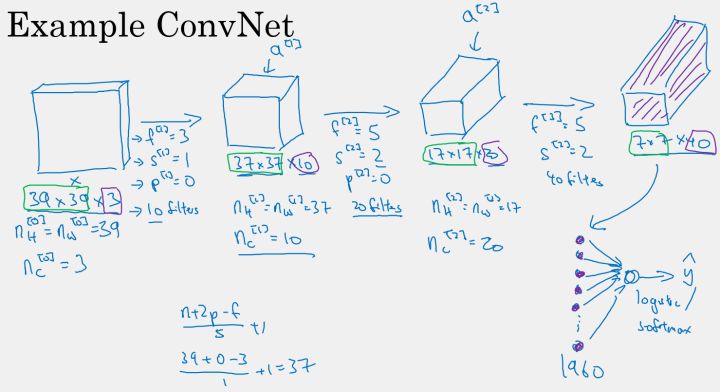 Example ConvNet
a^[1]
a^[2]
x
39 × 39 × 3
n_H^[0] = n_W^[0] = 39
n_C^[0] = 3
→ f^[1] = 3
→ s^[1] = 1
→ p^[1] = 0
→ 10 filters
37 × 37 × 10
n_H^[1] = n_W^[1] = 37
n_C^[1] = 10
f^[2] = 5
s^[2] = 2
p^[2] = 0
20 filters
17 × 17 × 20
n_H^[2] = n_W^[2] = 17
n_C^[2] = 20
f^[3] = 5
s^[2] = 2
40 filters
7 × 7 × 40
ŷ
logistic/
softmax
1960
n+2p-f
s
+1
39+0-3
1
+1 = 37